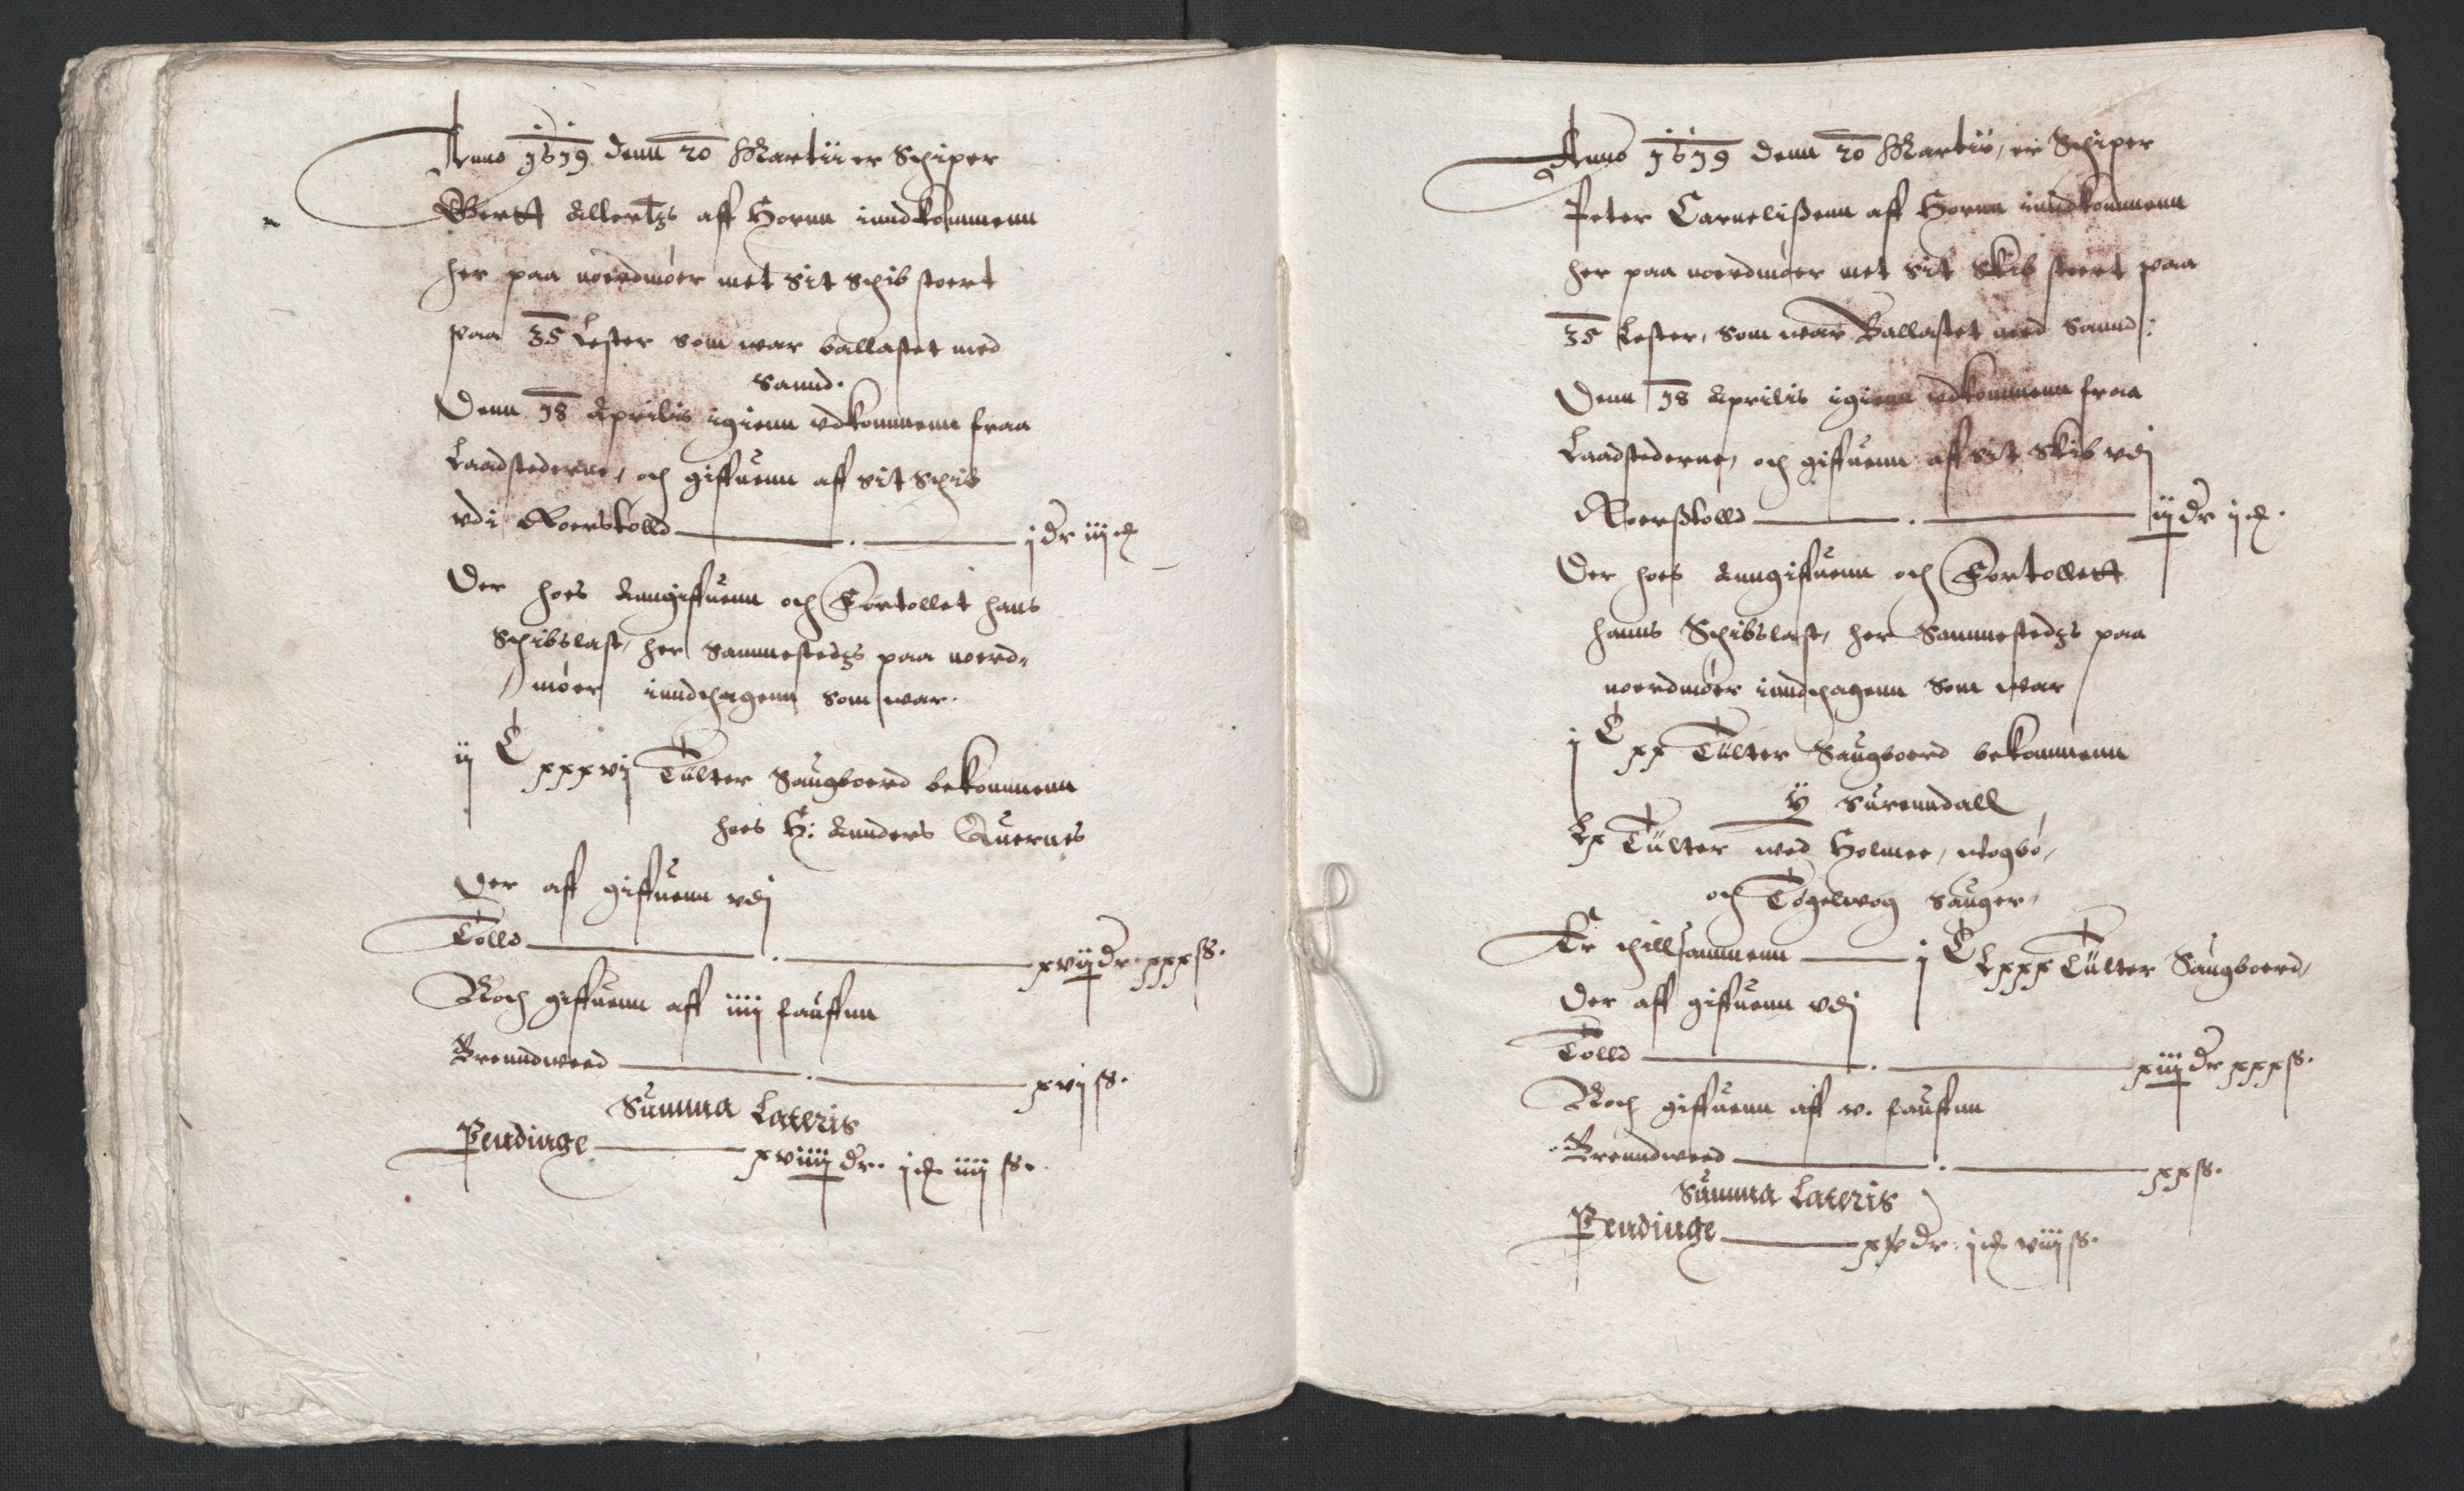 Anno 1619 denn 20 Martii er Schiper
Gertt Allertzs aff Hornn inndkommenn
her paa noerdmøer met sit Schib stoert
paa 35 Lester som war ballastet med
Sannd.
Denn 18 Aprilis igienn vdkommenn fraa
Laadstederne, och giffuenn aff sit Schib
vdi Roerstolld — . — j dr iiij
Der hoes Anngiffuenn och Fortollet hans
Schibslast, her Sammestedzs paa noerd-
møer inndthagenn som war.
ij C xxxvj Tülter Saugboerd bekommenn
hoes H: Annders Quernes
Der aff giffuenn vdj
Tolld — . — xvij dr. xxx ß.
Noch giffuenn aff iiij faufnn
Brenndweed — . — xvj ß.
Summa Lateris
Pendinge — xviiij dr. j iiij ß.
Anno 1619 denn 20 Martii, er Schiper
Peter Cornelißenn aff Hornn inndkommenn
her paa noerdmøer met sit Skib stoert paa
35 Lester, som war Ballastet med Sannd:
Denn 18 Aprilis igienn vdkommenn fraa
Laadstederne, och giffuenn aff sit Skib vdj
Roerßtolld — . — dr j
Der hoes Anngiffuenn och Fortollett
hanns Schibslast, her Sammestedzs paa
noerdmøer inndthagenn som war
j C xx Tülter Saugboerd bekommenn
ÿ Surenndall
Lx Tülter wed Holmee,
och Tøgelwog Sauger,
Er thillsammenn — j C Lxxx Tülter Saugboerd,
Der aff giffuenn vdj
Tolld — . — xiij dr xxx ß.
Noch giffuenn aff v. faufnn
Brenndweed — . — xx ß.
Summa Lateris
Pendinge — dr. j viij ß.